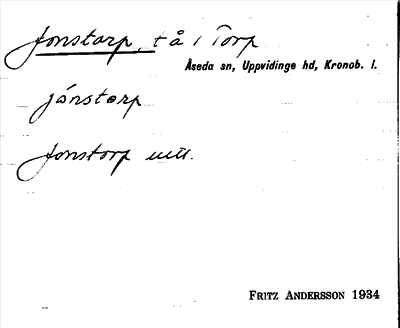 Jonstorp, t å i Torp
Åseda sn, Uppvidinge hd, Kronob. l.
jónstorp
Jonstorp uttl.
FRITZ ANDERSSON 1934